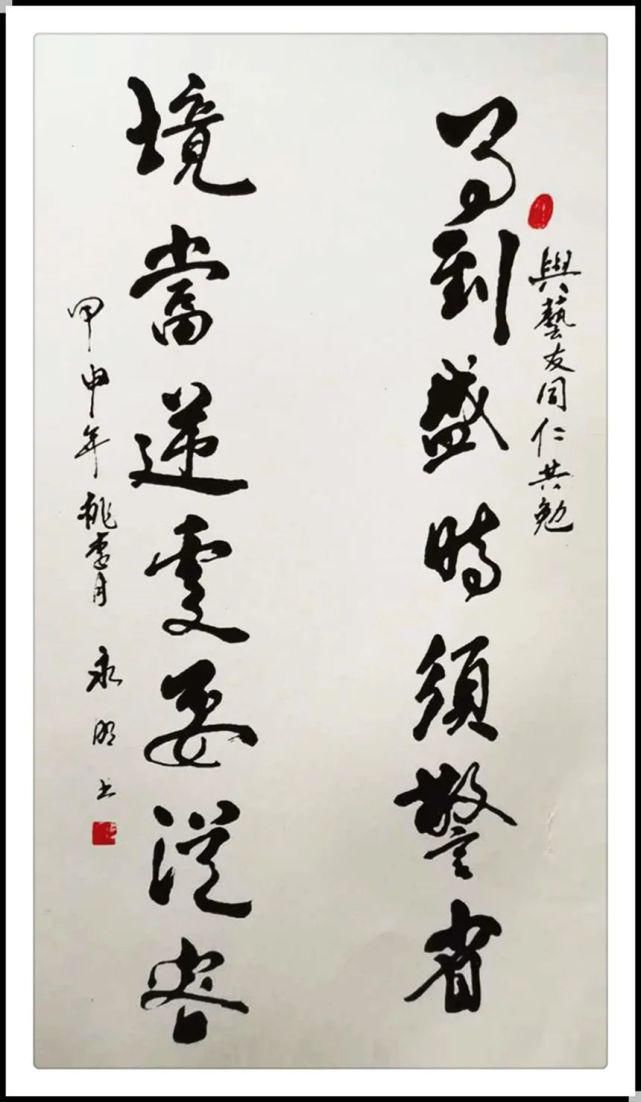 與藝友同仁共勉
事到盛時須警省
境當逆處要從容
甲申年桃李月 永明书